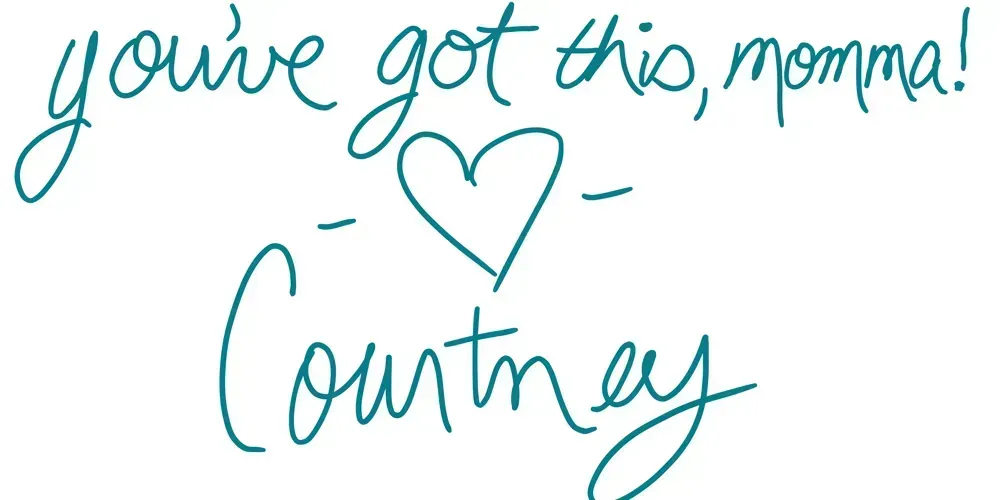 you've got this, momma!
Courtney